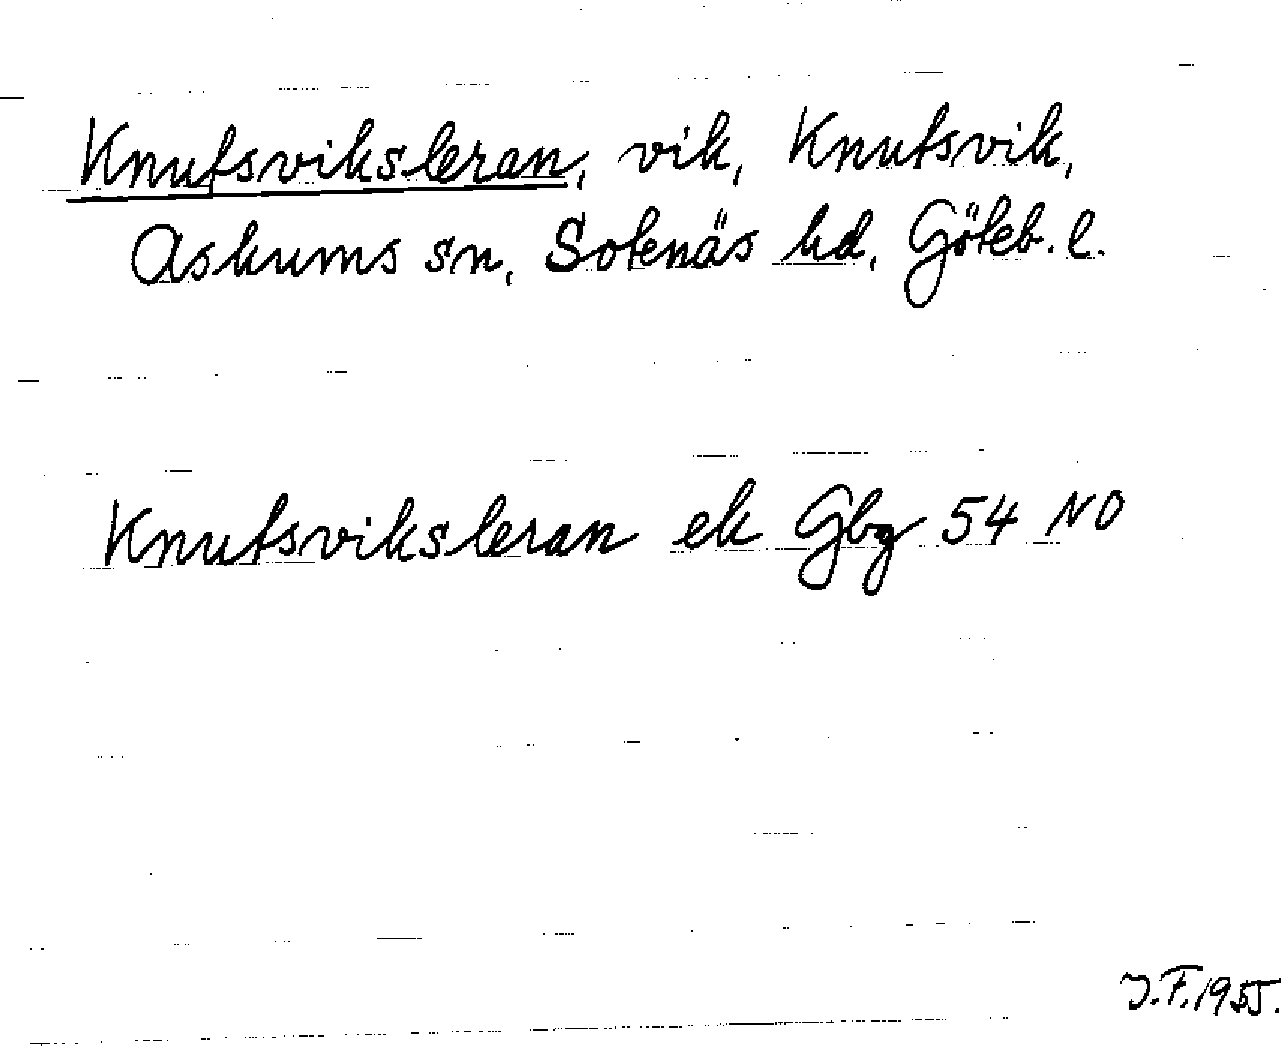 Knutsviksleran, vik, Knutsvik,
Askums sn, Sotenäs hd, Göteb. l.
Knutsviksleran ek Gbg 54 NO
J.F. 1955.